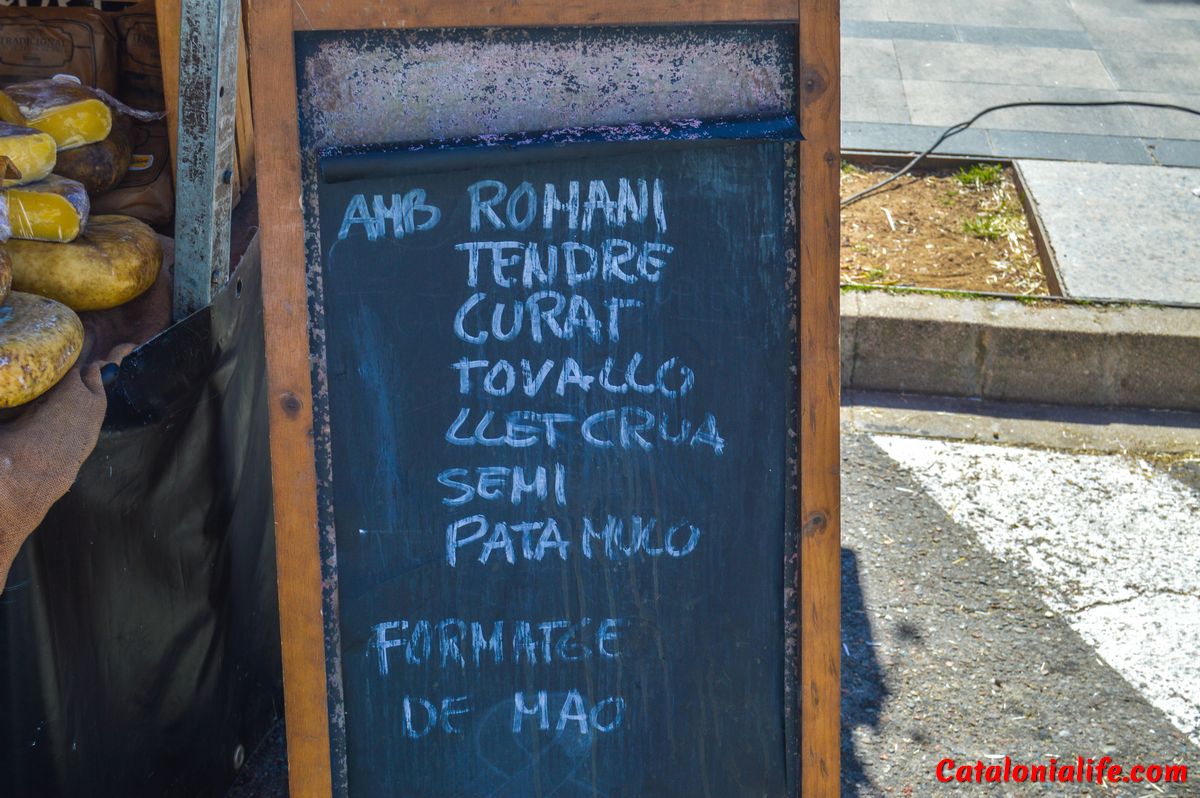 TRADICIONAL
AMB ROMANI
TENDRE
CURAT
TOVALLO
LLET CRUA
SEMI
PATA MULO
FORMATGE
DE MAO
Catalonialife.com